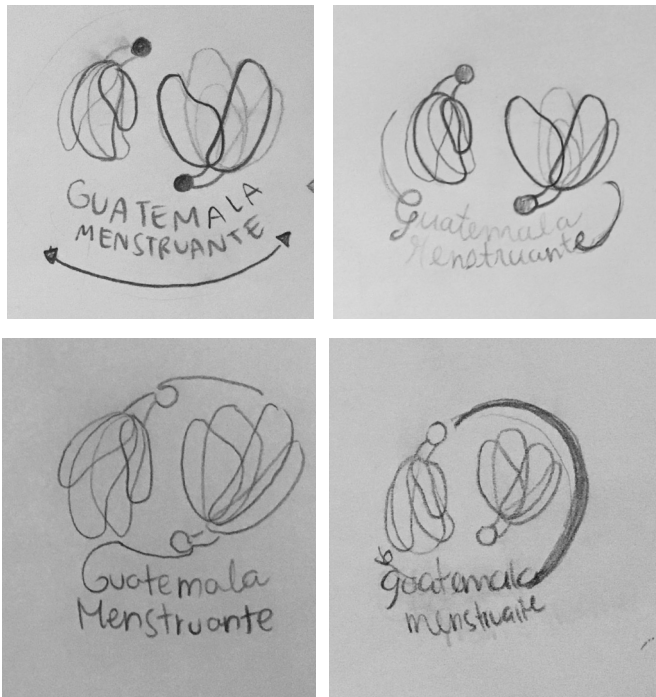 GUATEMALA
MENSTRUANTE
Guatemala
Menstruante
Guatemala
Menstruante
guatemala
menstruante